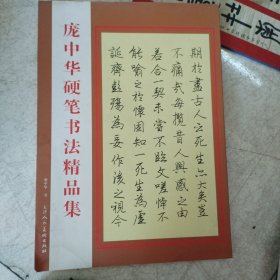 庞中华硬笔书法精品集
期於盡古人云死生亦大矣豈
不痛哉每攬昔人興感之由
若合一契未嘗不臨文嗟悼不
能喻之於懷固知一死生為虛
誕齊彭殤為妄作後之視今
庞中华 著
天津人民美术出版社